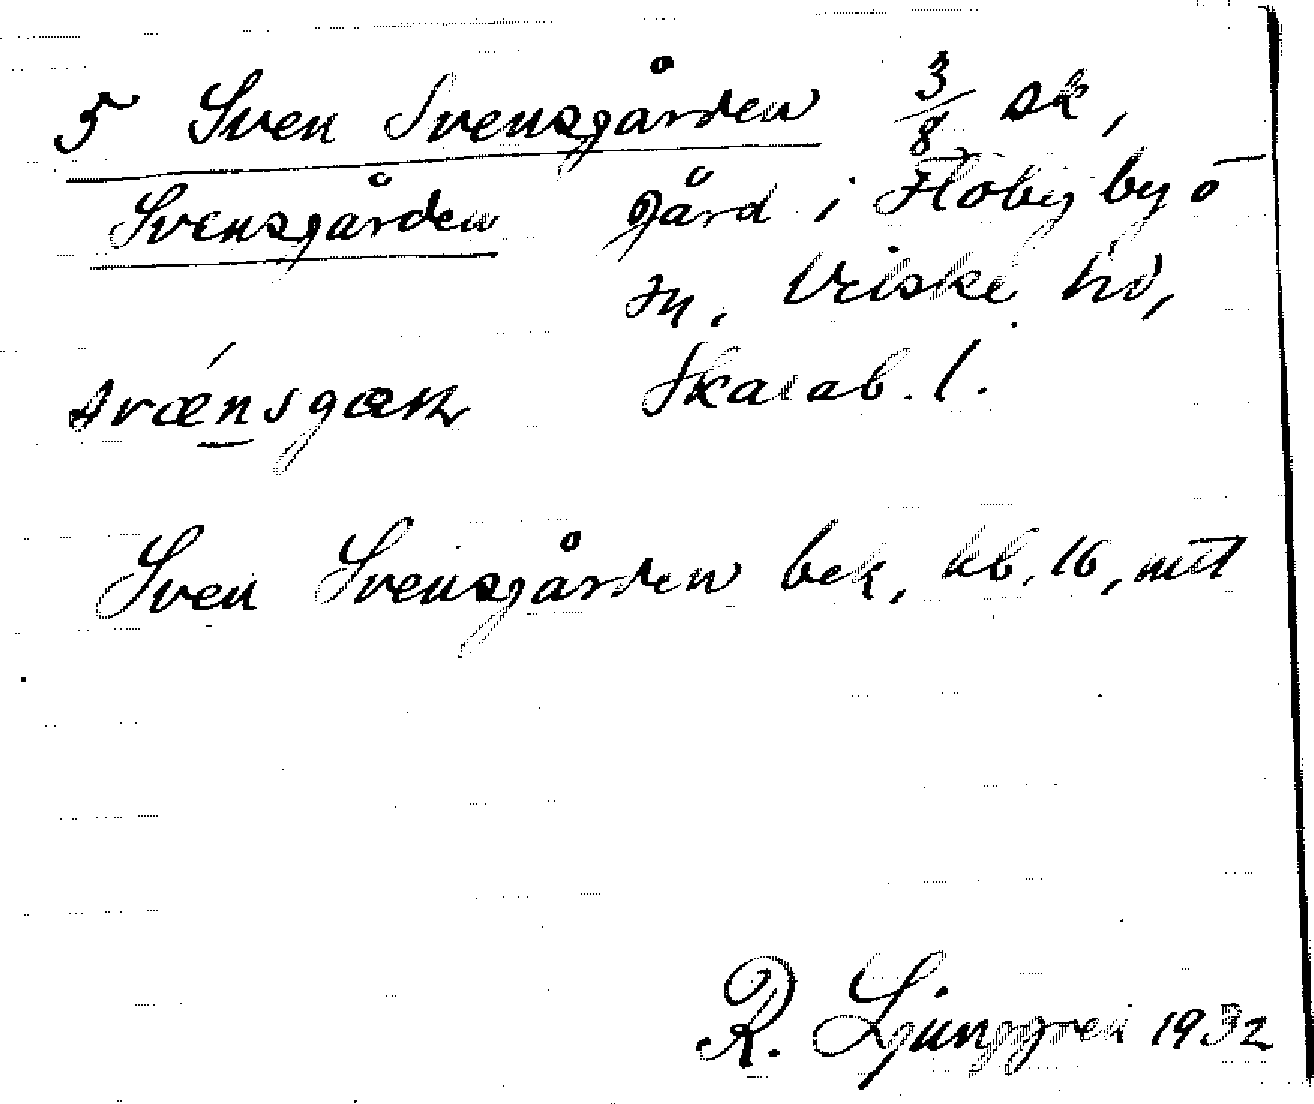 5 Sven Svensgården 3/8 sk,
Svensgården gård i Floby by o
sn, Vilske hd,
svænsgæɳ Skarab. l.
Sven Svensgården bek, kb. 16, mtl
R. Ljunggren 1932